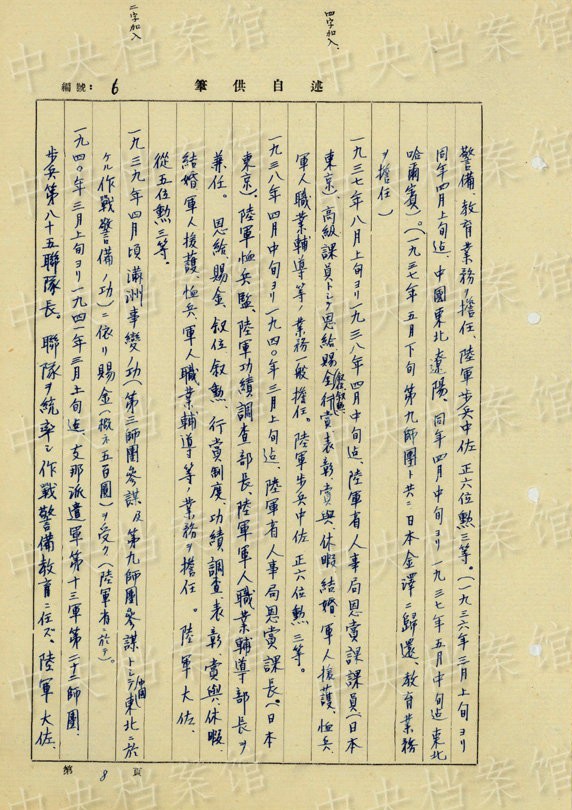 四字加入
二字加入
編號：6
述自供筆
警備、教育業務ノ擔任、陸軍歩兵中佐 正六位勲三等。（一九三六年三月上旬ヨリ
同年四月上旬迠、中國東北遼陽、同年四月中旬ヨリ一九三七年五月中旬迠東北
哈爾賓）。（一九三七年五月下旬第九師團ト共ニ日本金澤ニ歸還、教育業務
ヲ擔任）
一九三七年八月上旬ヨリ一九三八年四月中旬迠、陸軍省人事局恩賞課課員（日本
東京）、高級課員トシテ恩給賜金行賞表彰賞與休暇結婚軍人援護、恤兵
軍人職業輔導等ノ業務一般擔任。陸軍歩兵中佐 正六位勲三等。
一九三八年四月中旬ヨリ一九四〇年三月上旬迠、陸軍省人事局恩賞課長。（日本
東京）、陸軍恤兵監、陸軍功績調査部長、陸軍軍人職業輔導部長ヲ
兼任。恩給、賜金、叙位、叙勲、行賞制度、功績調査、表彰賞與、休暇
結婚軍人援護、恤兵、軍人職業輔導等業務ヲ擔任。陸軍大佐、
從五位勲三等。
一九三九年四月頃滿洲事變ノ功（第三師團參謀及第九師團參謀トシテ中国東北ニ於
ケル作戰警備ノ功）ニ依リ賜金（概ネ五百圓）ヲ受ク（陸軍省ニ於テ）。
一九四〇年三月上旬ヨリ一九四一年三月上旬迠、支那派遣軍第十三軍第二十二師團
歩兵第八十五聯隊長。聯隊ヲ統率シ作戰警備教育ニ任ズ。陸軍大佐、
第8頁
中央档案馆